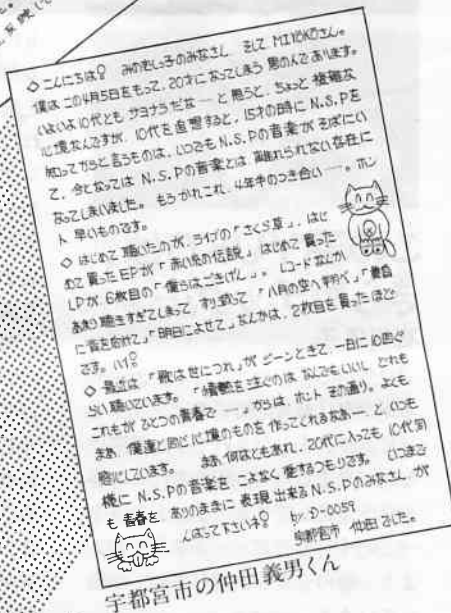 反映して
◇こんにちは♀ みのむしっ子のみなさん、そして MIYOKOさん。
僕はこの4月5日をもって、20才になってしまう男のんであります。
いよいよ10代ともサヨナラだな——と思うと、ちょっと複雑な
心境なんですが、10代を追想すると、15才の時にN.S.Pを
知ってからと言うものは、いつでもN.S.Pの音楽がそばにい
て、今となってはN.S.Pの音楽とは離れられない存在に
なってしまいました。もうかれこれ、4年半のつき合い——。ホン
ト早いものです。
◇はじめて聴いたのが、ライブの「さくら草」、はじ
めて買ったEPが「赤い糸の伝説」はじめて買った
LPが、6枚目の「僕らはごきげん」。レコードなんか
あまり聴きすぎてしまって、すり減って、「八月の空へ翔べ」「
に背を向けて」「明日によせて」なんかは、2枚目を買ったほど
です。ハイ♀
◇最近は、「歌は世につれ」がビーンときて、一日に10回ぐ
らい聴いています。「情熱を注ぐのは なんでもいい、どれも
これもが ひとつの青春で——」からは、ホント その通り。よくも
まあ、僕達と同じ心境のものを作ってくれるなあ—、と、いつも
感心しています。 まあ、何はともあれ、20代に入っても10代同
様にN.S.Pの音楽を こよなく愛するつもりです。 いつまで
も 青春を ありのままに 表現出来るN.S.Pのみなさん、が
んばって下さいネ♀ by. D-0059
宇都宮市 仲田でした。
宇都宮市の仲田義男くん